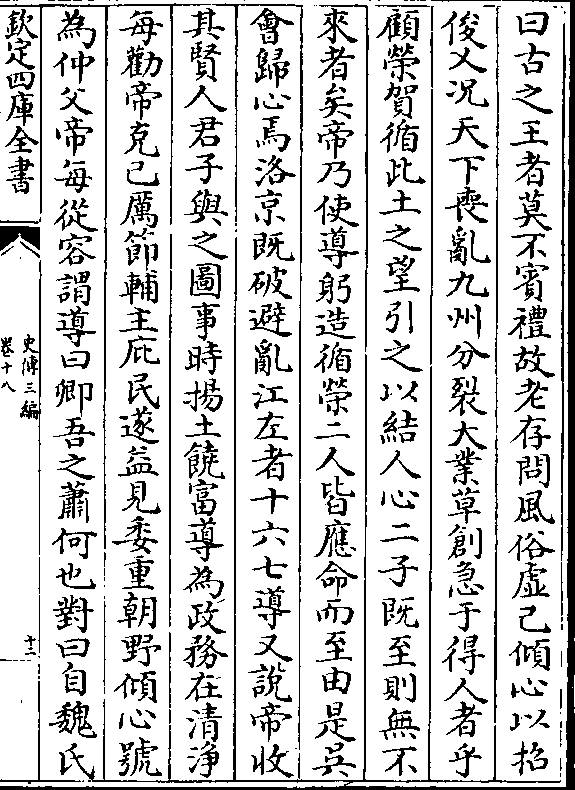 曰古之王者莫不賓禮故老存問風俗虛己傾心以招
俊乂况天下喪亂九州分裂大業草創急于得人者乎
顧榮賀循此土之望引之以結人心二子既至則無不
來者矣帝乃使導躬造循榮二人皆應命而至由是吳
會歸心焉洛京既破避亂江左者十六七導又說帝收
其賢人君子與之圖事時揚土饒富導為政務在清淨
每勸帝克己厲節輔主庇民遂益見委重朝野傾心號
為仲父帝每從容謂導曰卿吾之蕭何也對曰自魏氏
欽定四庫全書
史傳三編
卷十八
十三